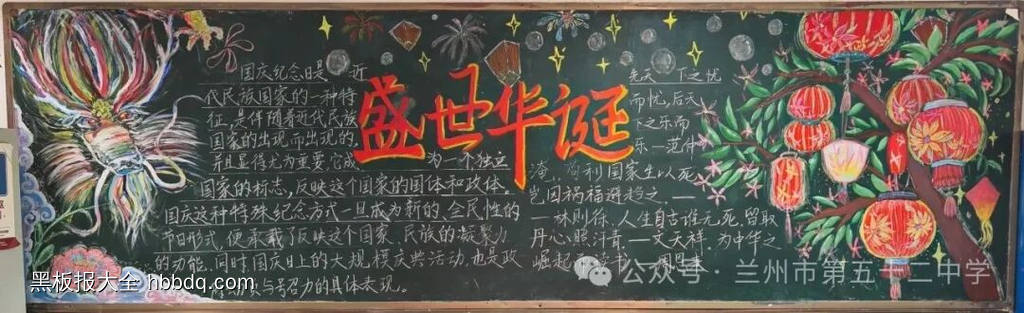 盛世华诞
国庆纪念日是 近
代民族国家的一种特
征,是伴随着近代民族
国家的出现而出现的,
并且显得尤为重要。它成
为一个独立
国家的标志,反映这个国家的国体和政体。
国庆这种特殊纪念方式一旦成为新的、全民性的
节日形式,便承载了反映这个国家、民族的凝聚力
的功能。同时国庆日上的大规模庆典活动,也是政
与号召力的具体表现。
先天 下之忧
而忧,后天
下之乐而
乐—范仲
淹 利国家生以死,
岂因祸福避趋之。—
—林则徐 人生自古谁无死,留取
丹心照汗青。—文天祥 为中华之
崛起
黑板报大全 hbbdq.com
公众号·兰州市第五十二中学